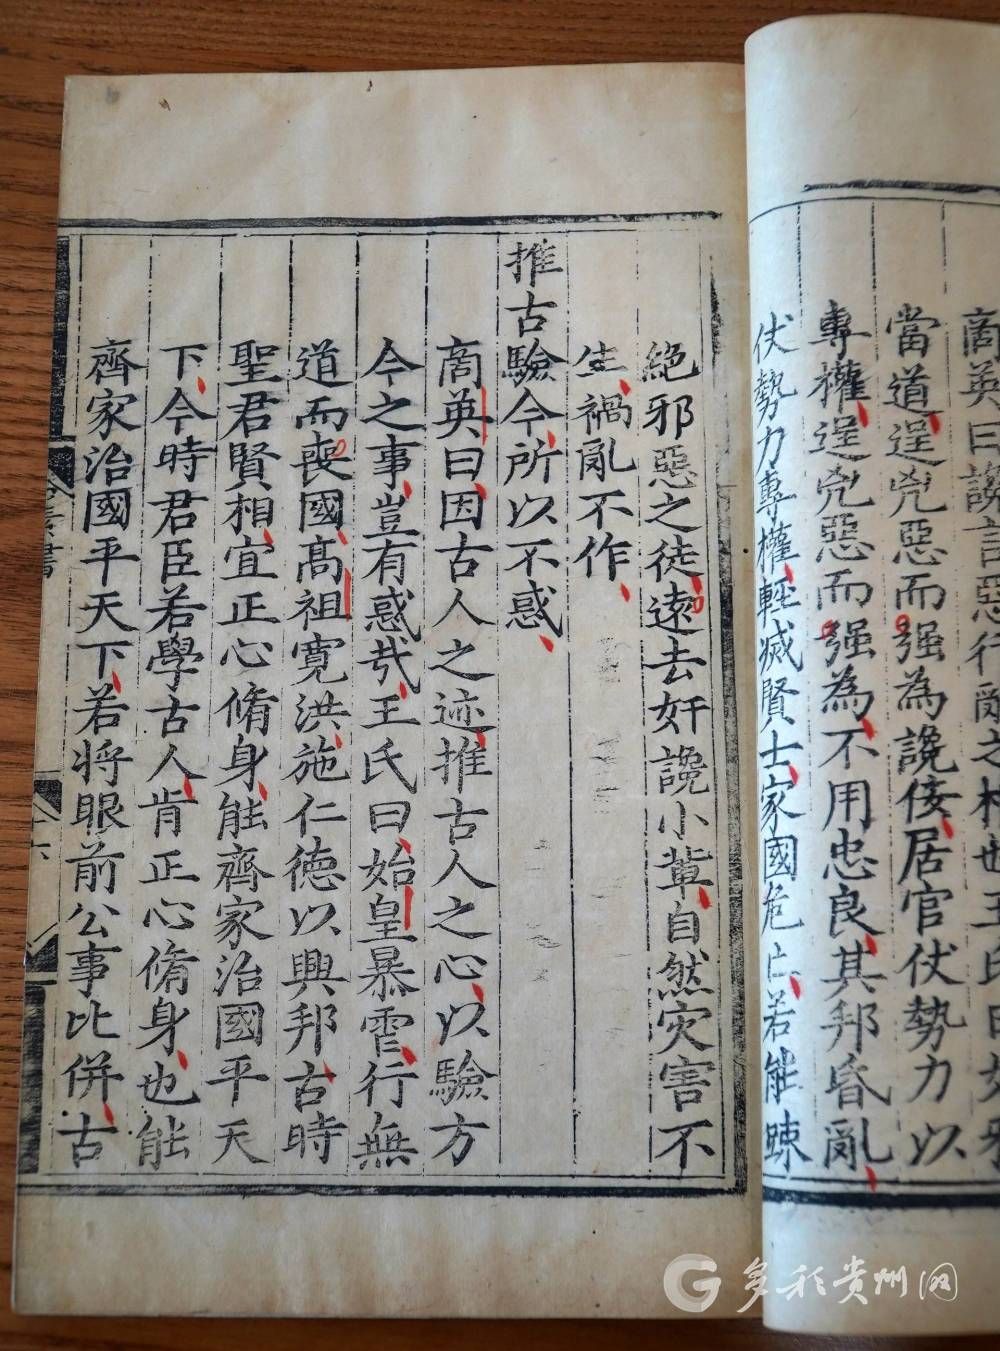 商英曰讒言惡行
之
也王氏曰
當道逞兇惡而强為讒佞居官伏勢力以
專權逞兇惡而强為不用忠良其邦昏亂
伏勢力專權輕滅賢士家國危亡若能踈
絕邪惡之徒遠去奸讒小軰自然灾害不
生禍亂不作
推古驗今所以不惑
商英曰因古人之迹推古人之心以驗方
今之事豈有惑㢤王氏曰始皇暴虐行無
道而喪國高祖寬洪施仁德以興邦古時
聖君賢相宜正心脩身能齊家治國平天
下今時君臣若學古人肯正心脩身也能
齊家治國平天下若將眼前公事比併古
六
多彩贵州网